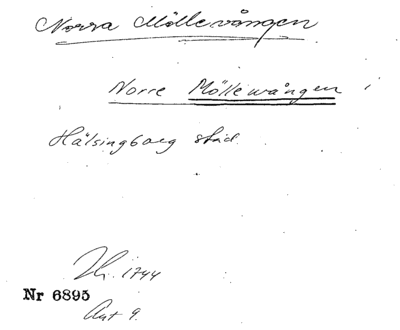 Norra Möllevången
Norre Möllewången i
Hälsingborg stad.
1744
Nr 6895
Akt 9.